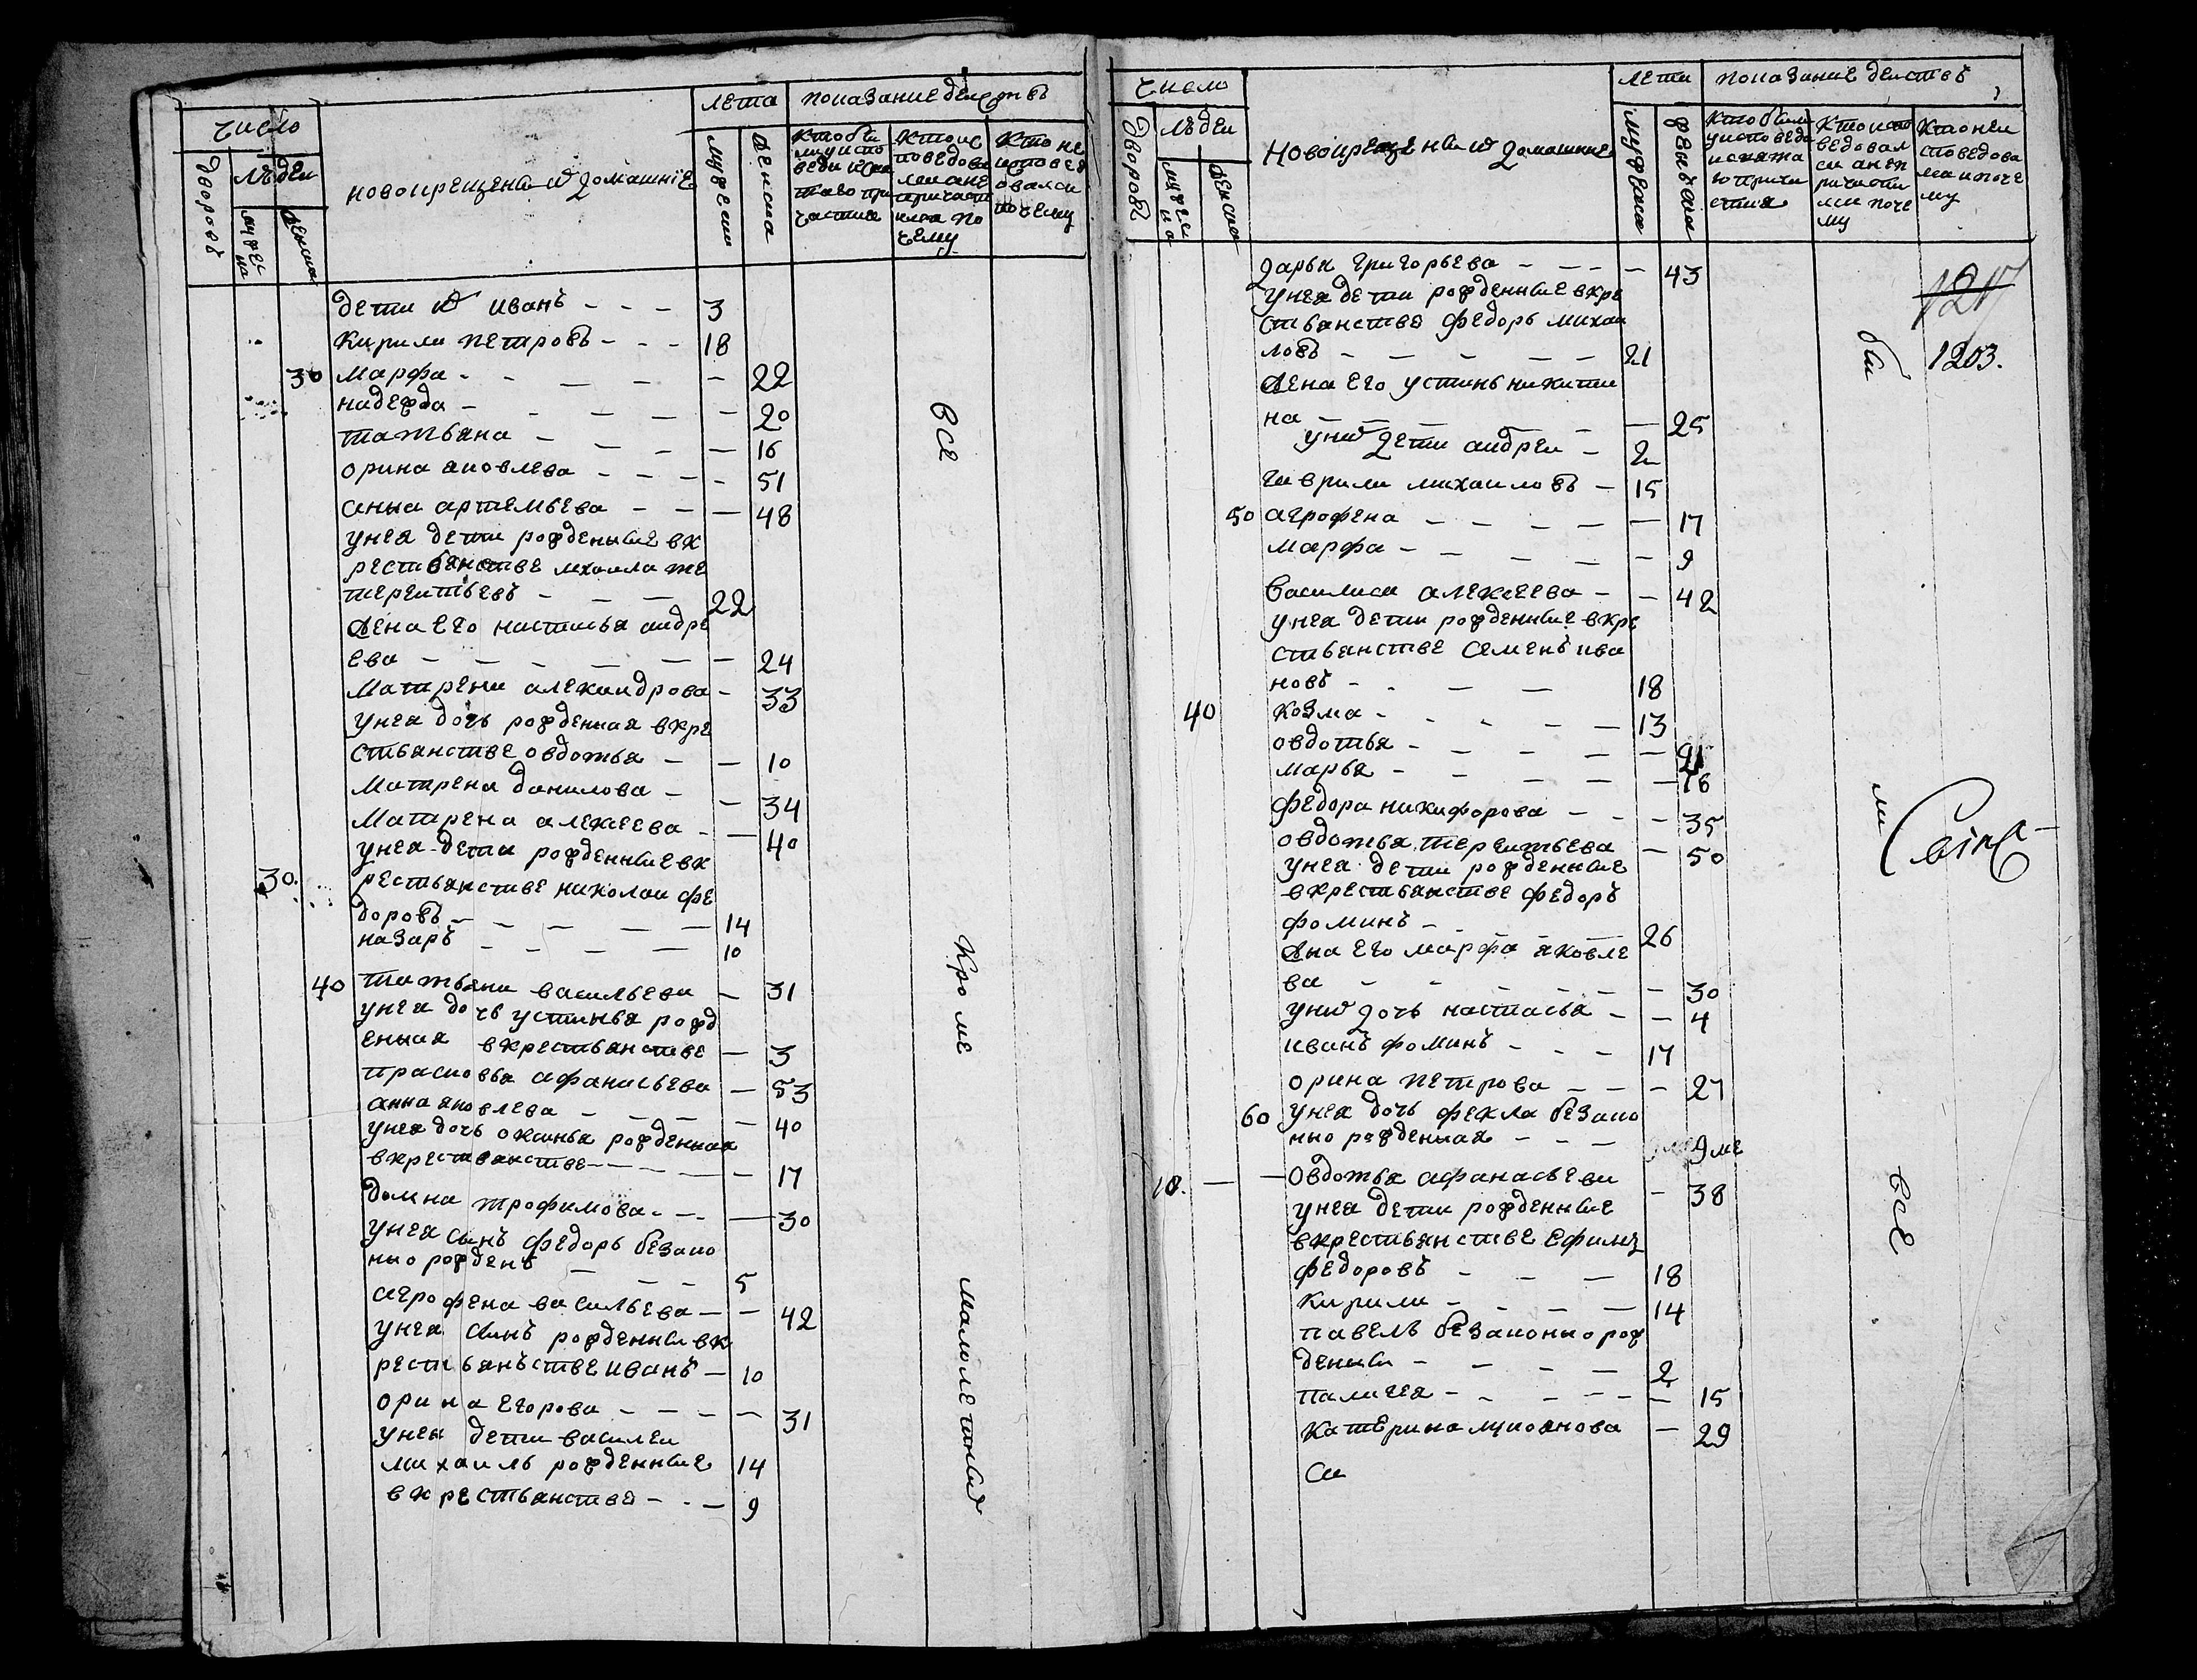 число
лета
показание деиствъ
дворовъ
людеи
мужеска
женска
новокрещены и домашние
мужеска
женска
кто не
дети их иванъ - - - 3
кирила петровъ - - - 18
30 марфа - - - - - 22
надежда - - - - - 20
татьяна - - - - 16
орина яковлева - - - - 51
анна артемьева - - - 48
унея дети рожденные вк
рестьянстве михаила те
терентьевъ - - - 22
жена его настасья андре
ева - - - - - - 24
Матрена александрова - 33
унея дочь рожденная вкре
стьянстве овдотья - - 10
Матрена данилова - - 34
Матрена алексеева - - 40
унея дети рожденные вк
30. рестьянстве николаи фе
доровъ - - - - - 14
назаръ - - - - 10
40 татьяна васильева - 31
унея дочь устинья рожд
енная вкрестьянстве - 3
прасковья афанасьева - 53
анна яковлева - - - - 40
унея дочь оксинья рожденная
вкрестьянстве - - - - - 17
домна трофимова - - - 30
унея сынъ федоръ безако
нно рожденъ - - - 5
агрофена васильева - - 42
унея сынъ рожденны вк
рестьянъстве иванъ - 10
орина егорова - - - - 31
унея дети василеи
михаилъ рожденные 14
вкрестьянстве - - - 9
все
кроме
малолетных
число
лета
показание деиствъ
дворовъ
людеи
мужеска
женска
новокрещены и домашние
мужеска
женска
дарья григорьева - - - - 43
унея дети рожденные вкре
стьянстве федоръ михаи
ловъ - - - - - 21
жена его устинья никити
на - - - - - - 25
уних дети андреи - 2
гаврила михаиловъ - 15
50 агрофена - - - - - 17
марфа - - - - - 9
василиса алексеева - - 42
унея дети рожденные вкре
стьянстве семенъ ива
новъ - - - - 18
40 козма - - - - - 13
овдотья - - - - - 21
марья - - - - - 16
федора никифорова - - - 35
овдотья терентьева - 50
унея дети рожденные
вкрестьянстве федоръ
фоминъ - - - - 26
жена его марфа яковле
ва - - - - - - 30
уних дочь настасья - - 4
иванъ фоминъ - - - 17
орина петрова - - - 27
60 унея дочь фекла безако
нно рожденная - - - 9 ме
10. - - Овдотья афанасьева - 38
унея дети рожденные
вкрестьянстве Ефимъ
федоровъ - - - 18
кирила - - - - 14
павелъ безаконно рож
денны - - - - 2
палагея - - - - - 15
катерина лукоянова - 29
бы
ли
все
1203.